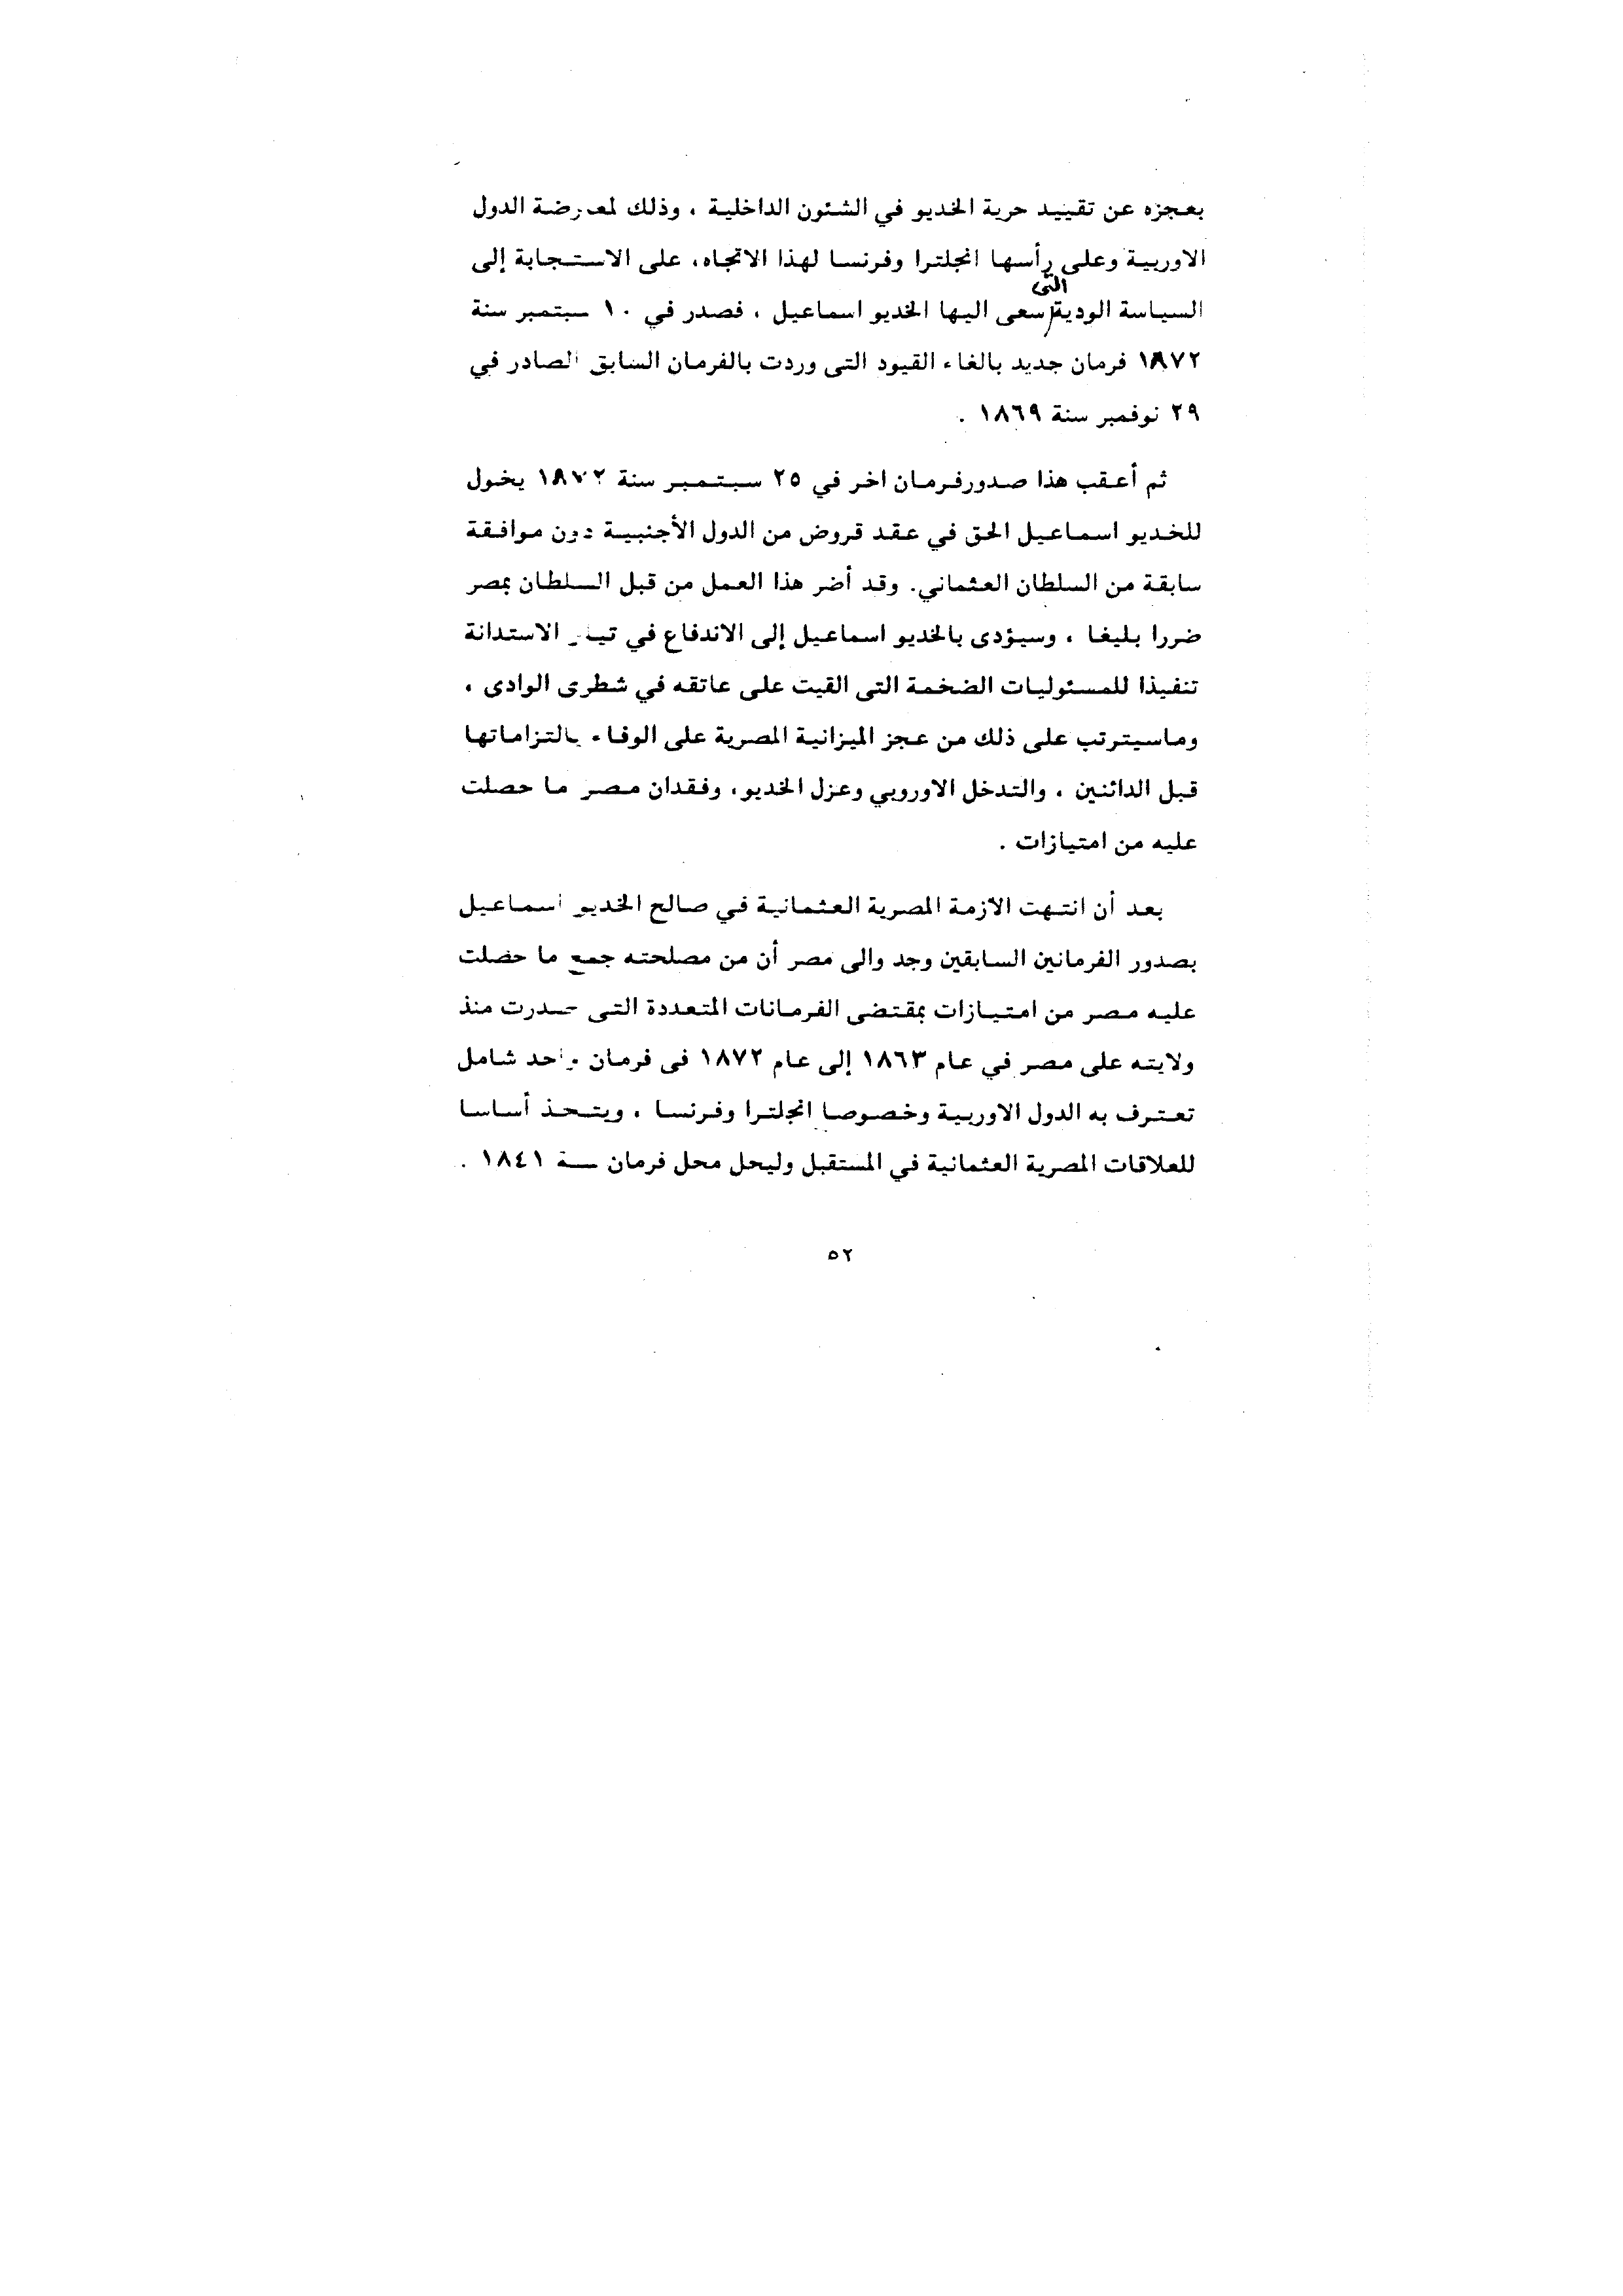 بعجزه عن تقييد حرية الخديو في الشئون الداخلية ، وذلك لمعارضة الدول
الاوربية وعلى رأسها انجلترا وفرنسا لهذا الاتجاه، على الاستجابة إلى
التى
السياسة الودية سعى اليها الخديو اسماعيل ، فصدر في ١٠ سبتمبر سنة
١٨٧٢ فرمان جديد بالغاء القيود التى وردت بالفرمان السابق الصادر في
٢٩ نوفمبر سنة ١٨٦٩ .
ثم أعقب هذا صدورفرمان اخر في ٢٥ سبتمبر سنة ١٨٧٢ يخول
للخديو اسماعيل الحق في عقد قروض من الدول الأجنبية دون موافقة
سابقة من السلطان العثماني. وقد أضر هذا العمل من قبل السلطان بمصر
ضررا بليغا ، وسيؤدى بالخديو اسماعيل إلى الاندفاع في تيار الاستدانة
تنفيذا للمسئوليات الضخمة التى القيت على عاتقه في شطرى الوادى ،
وماسيترتب على ذلك من عجز الميزانية المصرية على الوفاء بالتزاماتها
قبل الدائنين ، والتدخل الاوروبي وعزل الخديو، وفقدان مصر ما حصلت
عليه من امتيازات .
بعد أن انتهت الازمة المصرية العثمانية في صالح الخديو اسماعيل
بصدور الفرمانين السابقين وجد والى مصر أن من مصلحته جمع ما حصلت
عليه مصر من امتيازات بمقتضى الفرمانات المتعددة التى صدرت منذ
ولايته على مصر في عام ١٨٦٣ إلى عام ١٨٧٢ فى فرمان واحد شامل
تعترف به الدول الاوربية وخصوصا انجلترا وفرنسا ، ويتخذ أساسا
للعلاقات المصرية العثمانية في المستقبل وليحل محل فرمان سنة ١٨٤١ .
٥٢